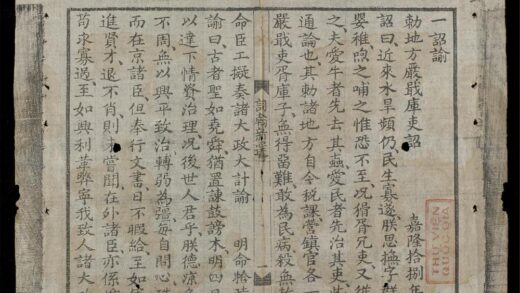 一詔諭
勅地方嚴戢庫吏詔 嘉隆拾捌年
詔曰近來水旱頻仍民生寡遂朕思撫字
嬰稚煦之哺之惟恐不至况猾胥兇吏又從
之夫愛牛者先去其蝱愛民者先治其吏
通論也其勅諸地方自今税課營鎮官各
嚴戢吏胥庫子無得留難敢為民病殺無
命臣工擬奏諸大政大計諭 明命拾
諭曰古者聖如堯舜猶置諫鼓謗木明四
以達下情資治理况後世人君乎朕德凉
不周無以興平致治轉弱為彊每自問心
而在京諸臣但奉行文書日不暇給至如
進賢才退不肖則未嘗聞在外諸臣亦係
苟求寡過至如興利革弊寧我致人諸大